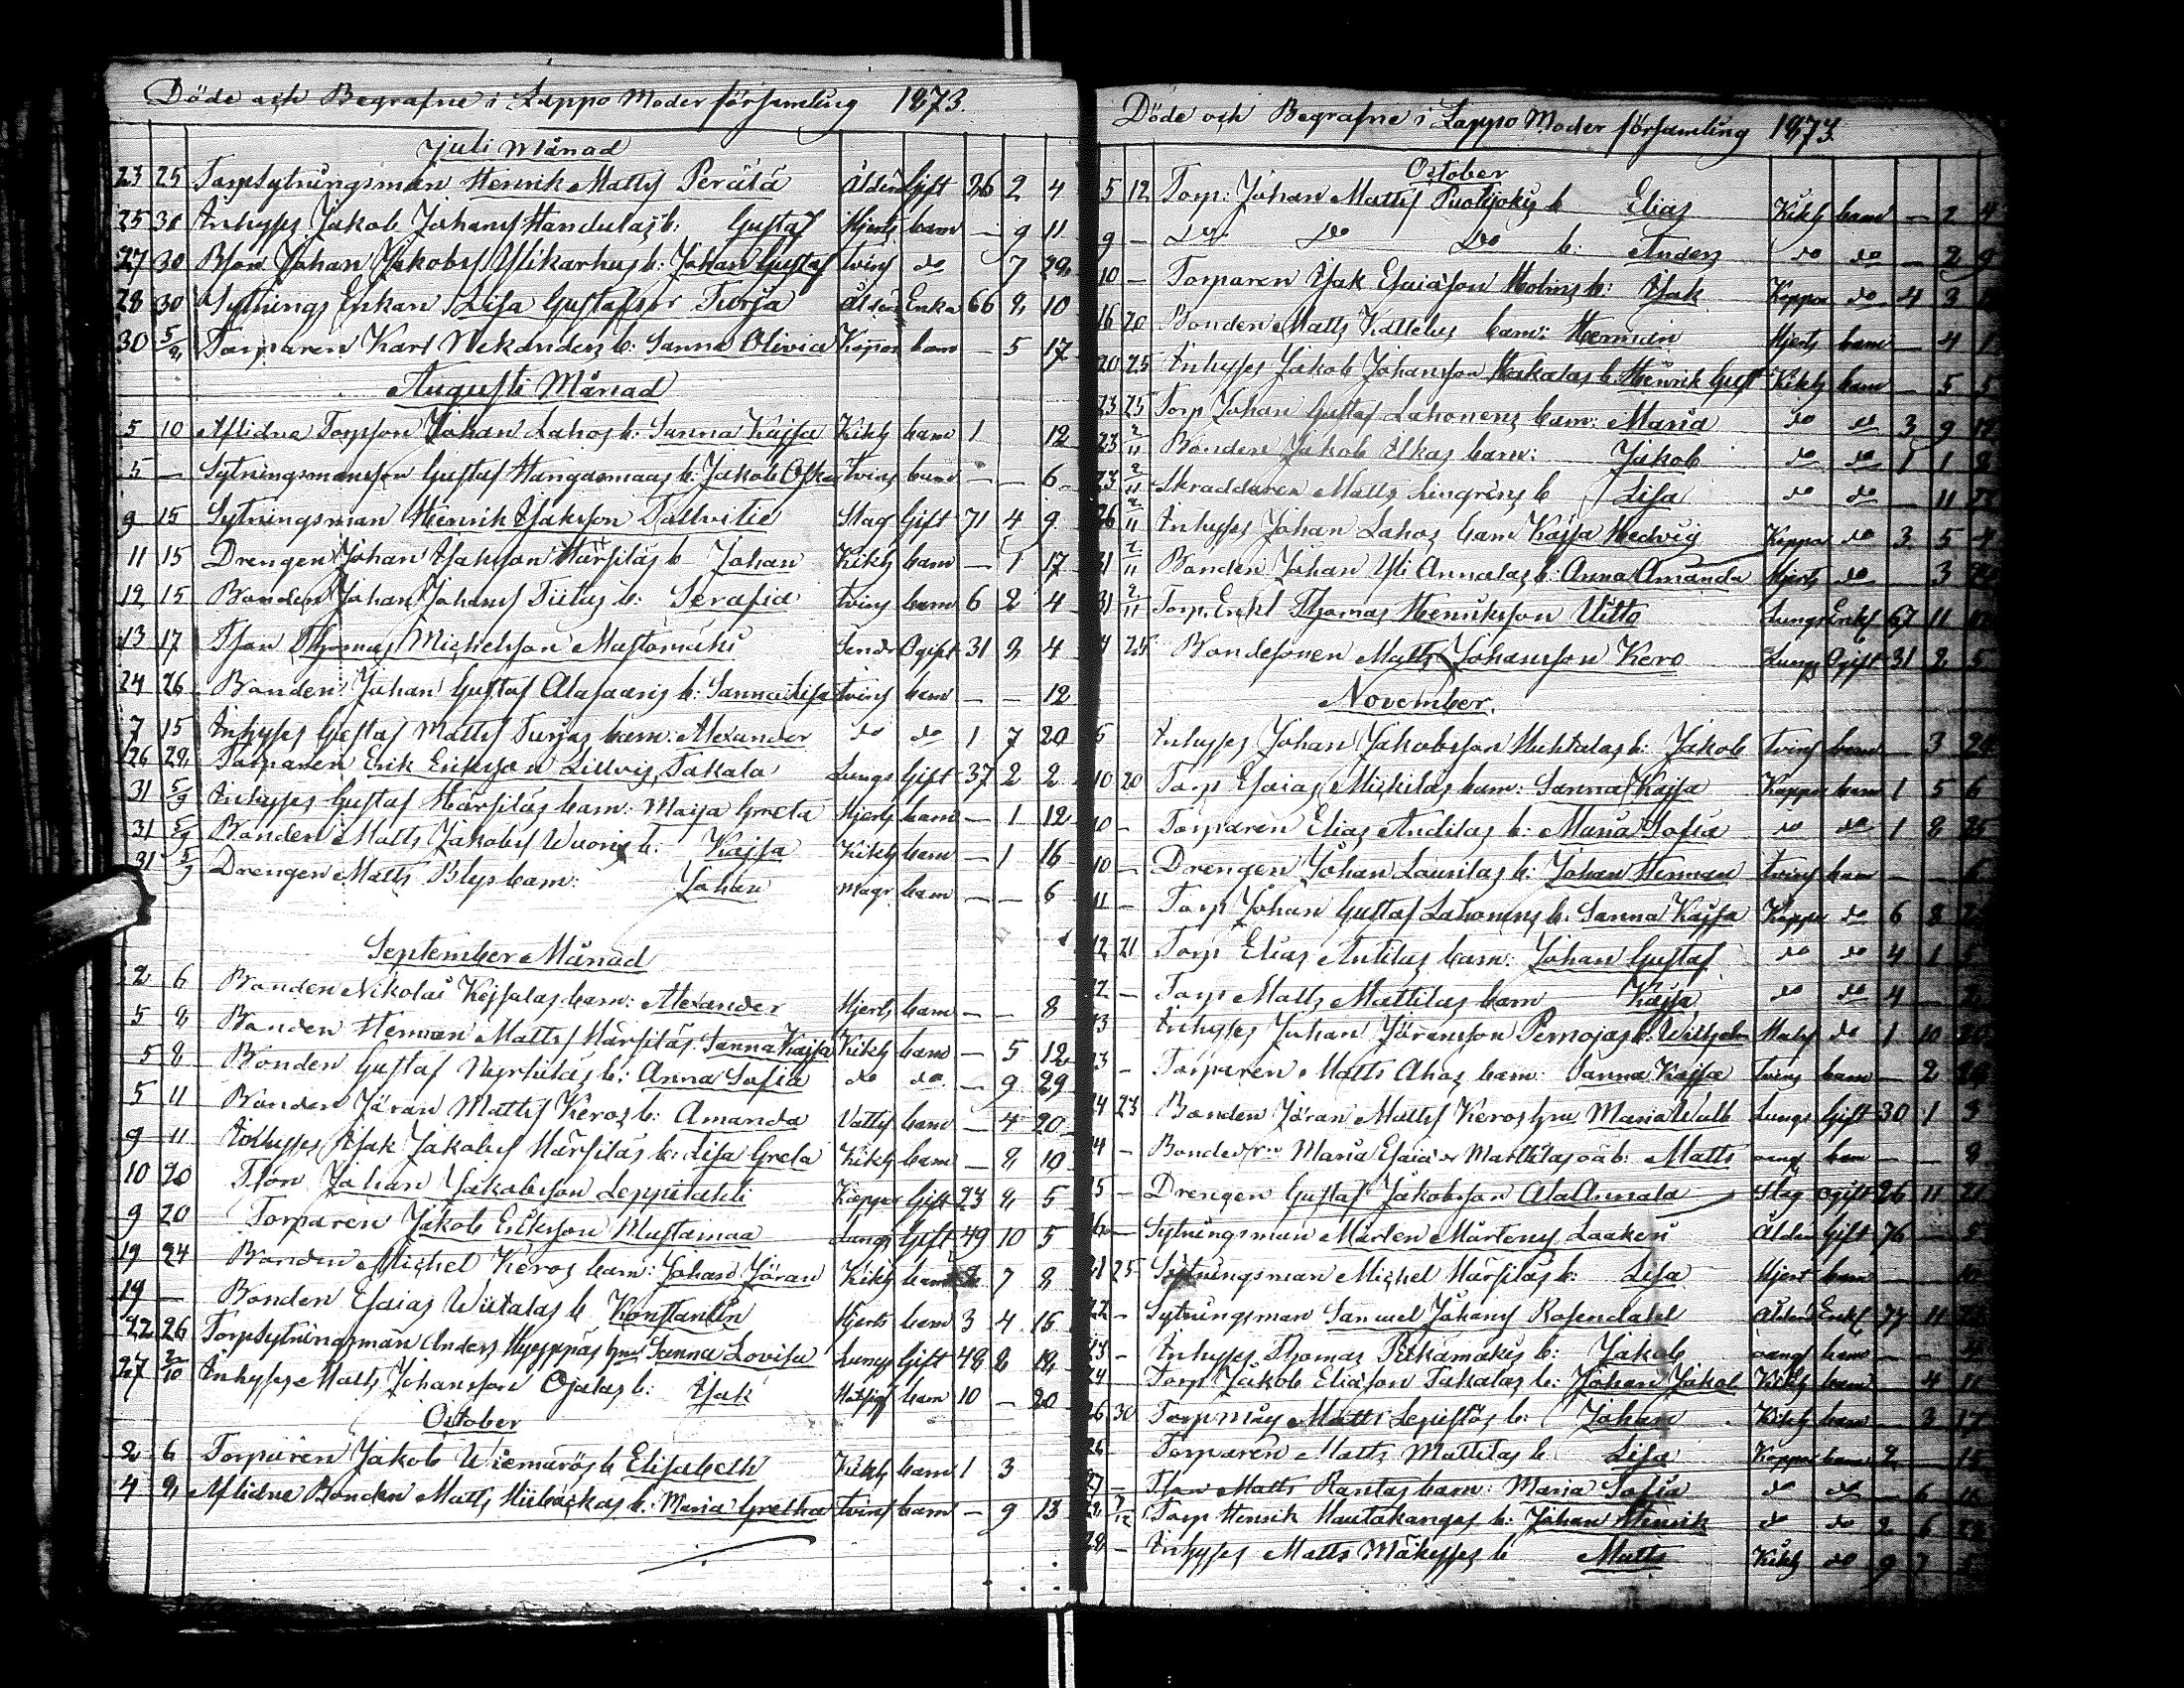 Döde och Begrafne i Lappo Moderförsamling 1873.
Juli Månad
23 25 Torpsytningsman Henrik Matts Perälä Ålder Gift 76 2 4
25 30 Inhyses Jakob Johans Handulas b. Gustaf Hjerts barn - 9 11
27 30 Bson Johan Jakobs Ylikarhus b: Johan Gustaf tvins do 7 29
28 30 Sytnings Enkan Lisa Gustafsdr Turja ålder Enka 66 2 10
30 5/8 Torparen Karl Wekanders b: Sanna Olivia Koppor barn - 5 17
Augusti Månad
5 10 Aflidne Torpson Johan Lahos b: Sanna Kajsa Kikh barn 1 12
5 - Sytningsmanson Gustaf Hangasmaas b: Jakob Oskar tvins barn - - 6
9 15 Sytningsman Henrik Isaksson Tallvitie Slag Gift 71 4 9
11 15 Drengen Johan Isaksson Härsiläs b Johan Kikh barn - 1 17
12 15 Bonden Johan Johans Tiitus b: Serafia tvins barn 6 2 4
13 17 Tson Thomas Michelsson Mustamäki Ogift 31 8 4
24 26 Bonden Johan Gustaf Alasaaris b: Sanna Lisa tvins barn - - 12
7 15 Inhyses Gustaf Matts Turjas barn: Alexander do do 1 7 20
26 29 Torparen Erik Eriksson Lillvis Takala Lungs Gift 37 2 2
31 5/9 Inhyses Gustaf Härsiläs barn: Maija Greta Hjerts barn - 1 12
31 5/9 Bonden Matts Jakobs Wuoris b: Kajsa Kikh barn - 1 16
31 5/9 Drengen Matts Blys barn: Johan Magr barn - - 6
September Månad
2 6 Bonden Nikolai Kejsalas barn: Alexander Hjerts barn - - 8
5 8 Bonden Herman Matts Härsiläs Sanna Kajsa Kikh barn - 5 12
5 8 Bonden Gustaf Nyrhiläs b: Anna Sofia do do - 9 29
5 11 Bonden Jöran Matts Keros b: Amanda Vatts barn - 4 20
9 11 Inhyses Isak Jakobs Härsiläs b: Lisa Greta Kikh barn - 8 19
10 20 Tson Johan Jakobsson Leppilahti Koppor Gift 23 8 5
9 20 Torparen Jakob Eriksson Mustamaa Lungs Gift 49 10 5
19 24 Bonden Michel Keros barn: Johan Jöran Kikh barn 7 8
19 - Bonden Esaias Wiitalas b Konstantin Hjerts barn 3 4 15
22 26 Torpsytningsman Anders hru Sanna Lovisa Lungs Gift 48 2 12
27 2/10 Inhyses Matts Johansson Ojalas b: Isak barn 10 - 20
October
2 6 Torparen Jakob Wiemarös b Elisabeth Kikh barn 1 3
4 9 Aflidne Bonden Matts Hiibackas b: Maria Gretha tvins barn - 9 13
Döde och Begrafne i Lappo Moderförsamling 1873.
October
5 12 Torp: Johan Matts Puotijokis b Elias Kikh barn - 2 4
9 - Do Do Do b: Anders do do - 2 9
10 - Torparen Isak Esaiasson b: Isak Koppor do 4 3
16 20 Bonden Matts Kattelus barn: Herman Hjerts barn - 4
20 25 Inhyses Jakob Johansson Hakalas b: Henrik Gust Kikh barn - 5 5
23 25 Torp Johan Gustaf Lahonens barn: Maria do do 3 9 12
23 2/11 Bonden Jakob Ilkas barn: Jakob do do 1 1 8
23 2/11 Skraddaren Matts Lingrens b Lisa do do - 11 23
26 2/11 Inhyses Johan Lahos barn Kajsa Hedvig Koppor do 3 5 4
31 2/11 Bonden Johan Yli Annalas b: Anna Amanda Hjerts do 3
31 2/11 Torp. Enkl Thomas Henriksson Uitto Lungs Enkl 67 11
25 Bondesonen Matts Johansson Kero Lungs Ogift 31 2 5
November.
6 Inhyses Johan Jakobsson Huhtalas b: Jakob Tvins barn - 3 24
10 20 Torp Esaias Mickilas barn: Sanna Kajsa Koppor barn 1 5 6
10 - Torparen Elias Andilas b: Maria Sofia do do 1 8 25
10 - Drengen Johan Laurilas b: Johan Herman tvins barn - - 6
11 - Torp Johan Gustaf Lahonens b: Sanna Kajsa Koppor do 6 8
12 21 Torp Elias Antilas barn: Johan Gustaf do do 4 1 5
12 - Torp Matts Mattilas barn Kajsa do do 4 -
13 Inhyses Johan Jöransson Pernojas b: Wilhelm do 1 10
13 - Torparen Matts Ahos barn: Sanna Kajsa tvins barn - 2
14 23 Bonden Jöran Matts Keros hru Maria Walb Lungs Gift 30 1 3
14 - Maria Esaiadr Marttilas oäb: Matts oangf barn - - 8
15 - Drengen Gustaf Jakobsson Ala Annala Slag ogift 26 11 21
16 - Sytningsman Mårten Mårtens Laakeri Ålder Gift 76 -
21 25 Sytningsman Michel Härsiläs b: Lisa Hjert barn -
22 - Sytningsman Samuel Johans Rosendahl Ålder Enkl 77 11
23 - Inhyses Thomas Pitkämäkis b: Jakob oangf barn - -
24 Torp Jakob Eliasson Takalas b: Johan Jakob Kikh barn 4 11
26 30 Torpmåg Matts b: Johan Kikh barn - 3 17
26 Torparen Matts Mattilas b Lisa Koppor barn 2 - 15
27 - Tson Matts Rantas barn: Maria Sofia do do - 6
28 7/12 Torp Henrik Hautakangas b: Johan Henrik do do 2 6 28
28 - Inhyses Matts Mäkyses b Matts Kikh do 9 7